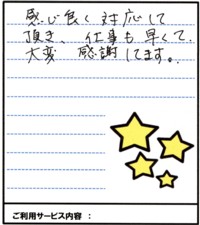 感じ良く対応して
頂き、仕事も早くて、
大変感謝してます。
ご利用サービス内容：